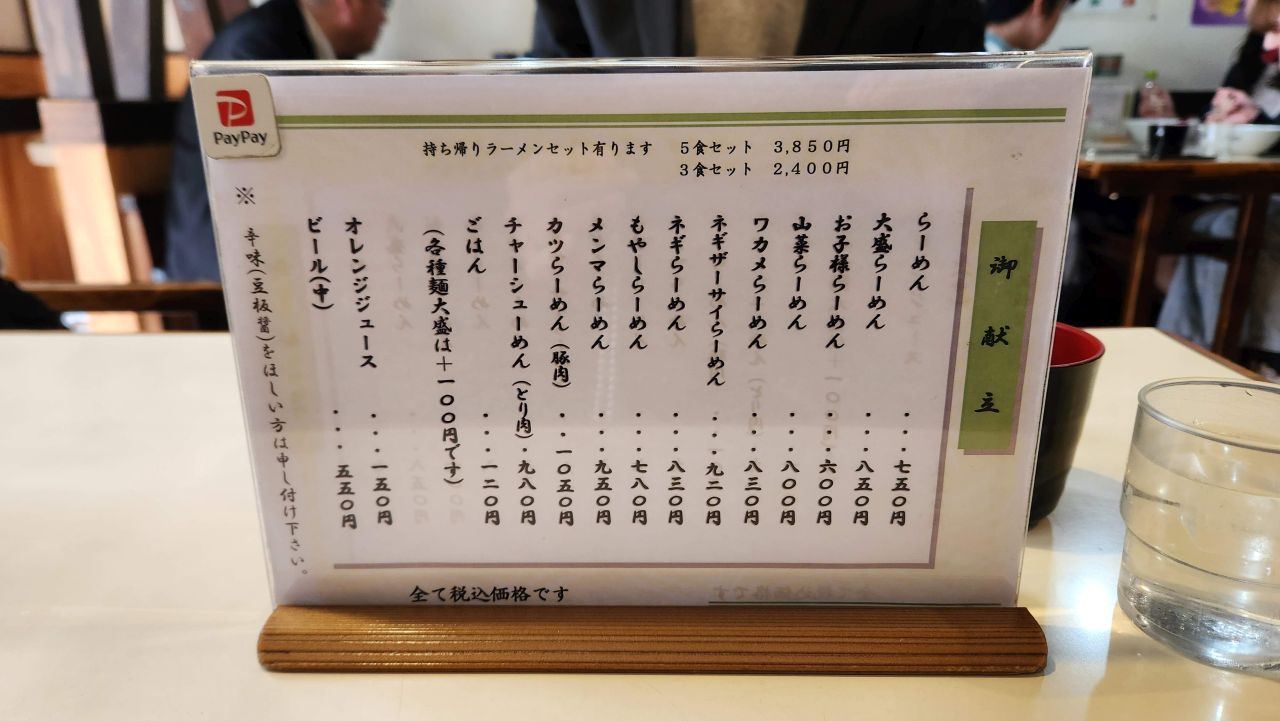 PayPay
持ち帰りラーメンセット有ります 5食セット 3,850円
3食セット 2,400円
御献立
らーめん・・・七五〇円
大盛らーめん・・・八五〇円
お子様らーめん・・六〇〇円
山菜らーめん・・・八〇〇円
ワカメらーめん・・・八三〇円
ネギザーサイらーめん・・・九二〇円
ネギらーめん・・・八三〇円
もやしらーめん・・・七八〇円
メンマらーめん・・・九五〇円
カツらーめん(豚肉)・・・一〇五〇円
チャーシューめん(とり肉)・九八〇円
ごはん・・・一二〇円
(各種麺大盛は+一〇〇円です)
オレンジジュース・・・一五〇円
ビール(中)・・・五五〇円
※ 辛味(豆板醤)をほしい方は申し付け下さい。
全て税込価格です